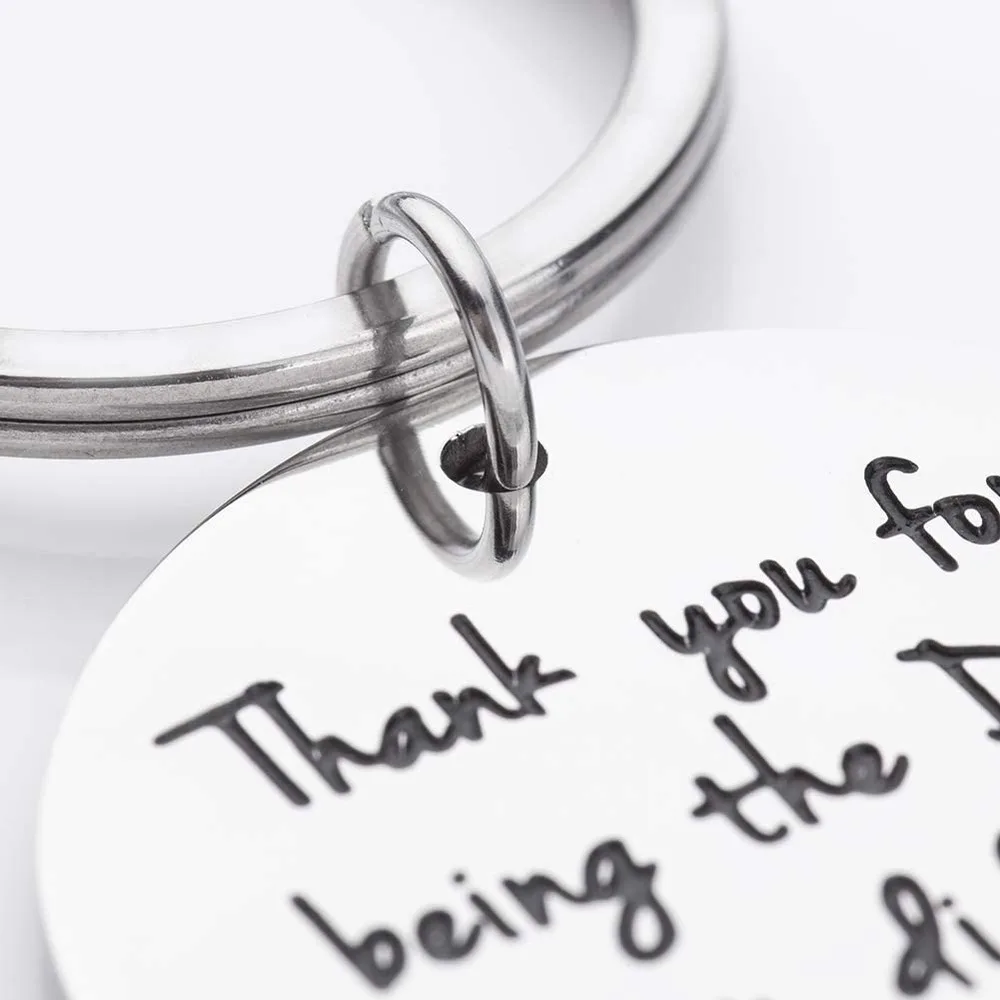 Thank you for
being the